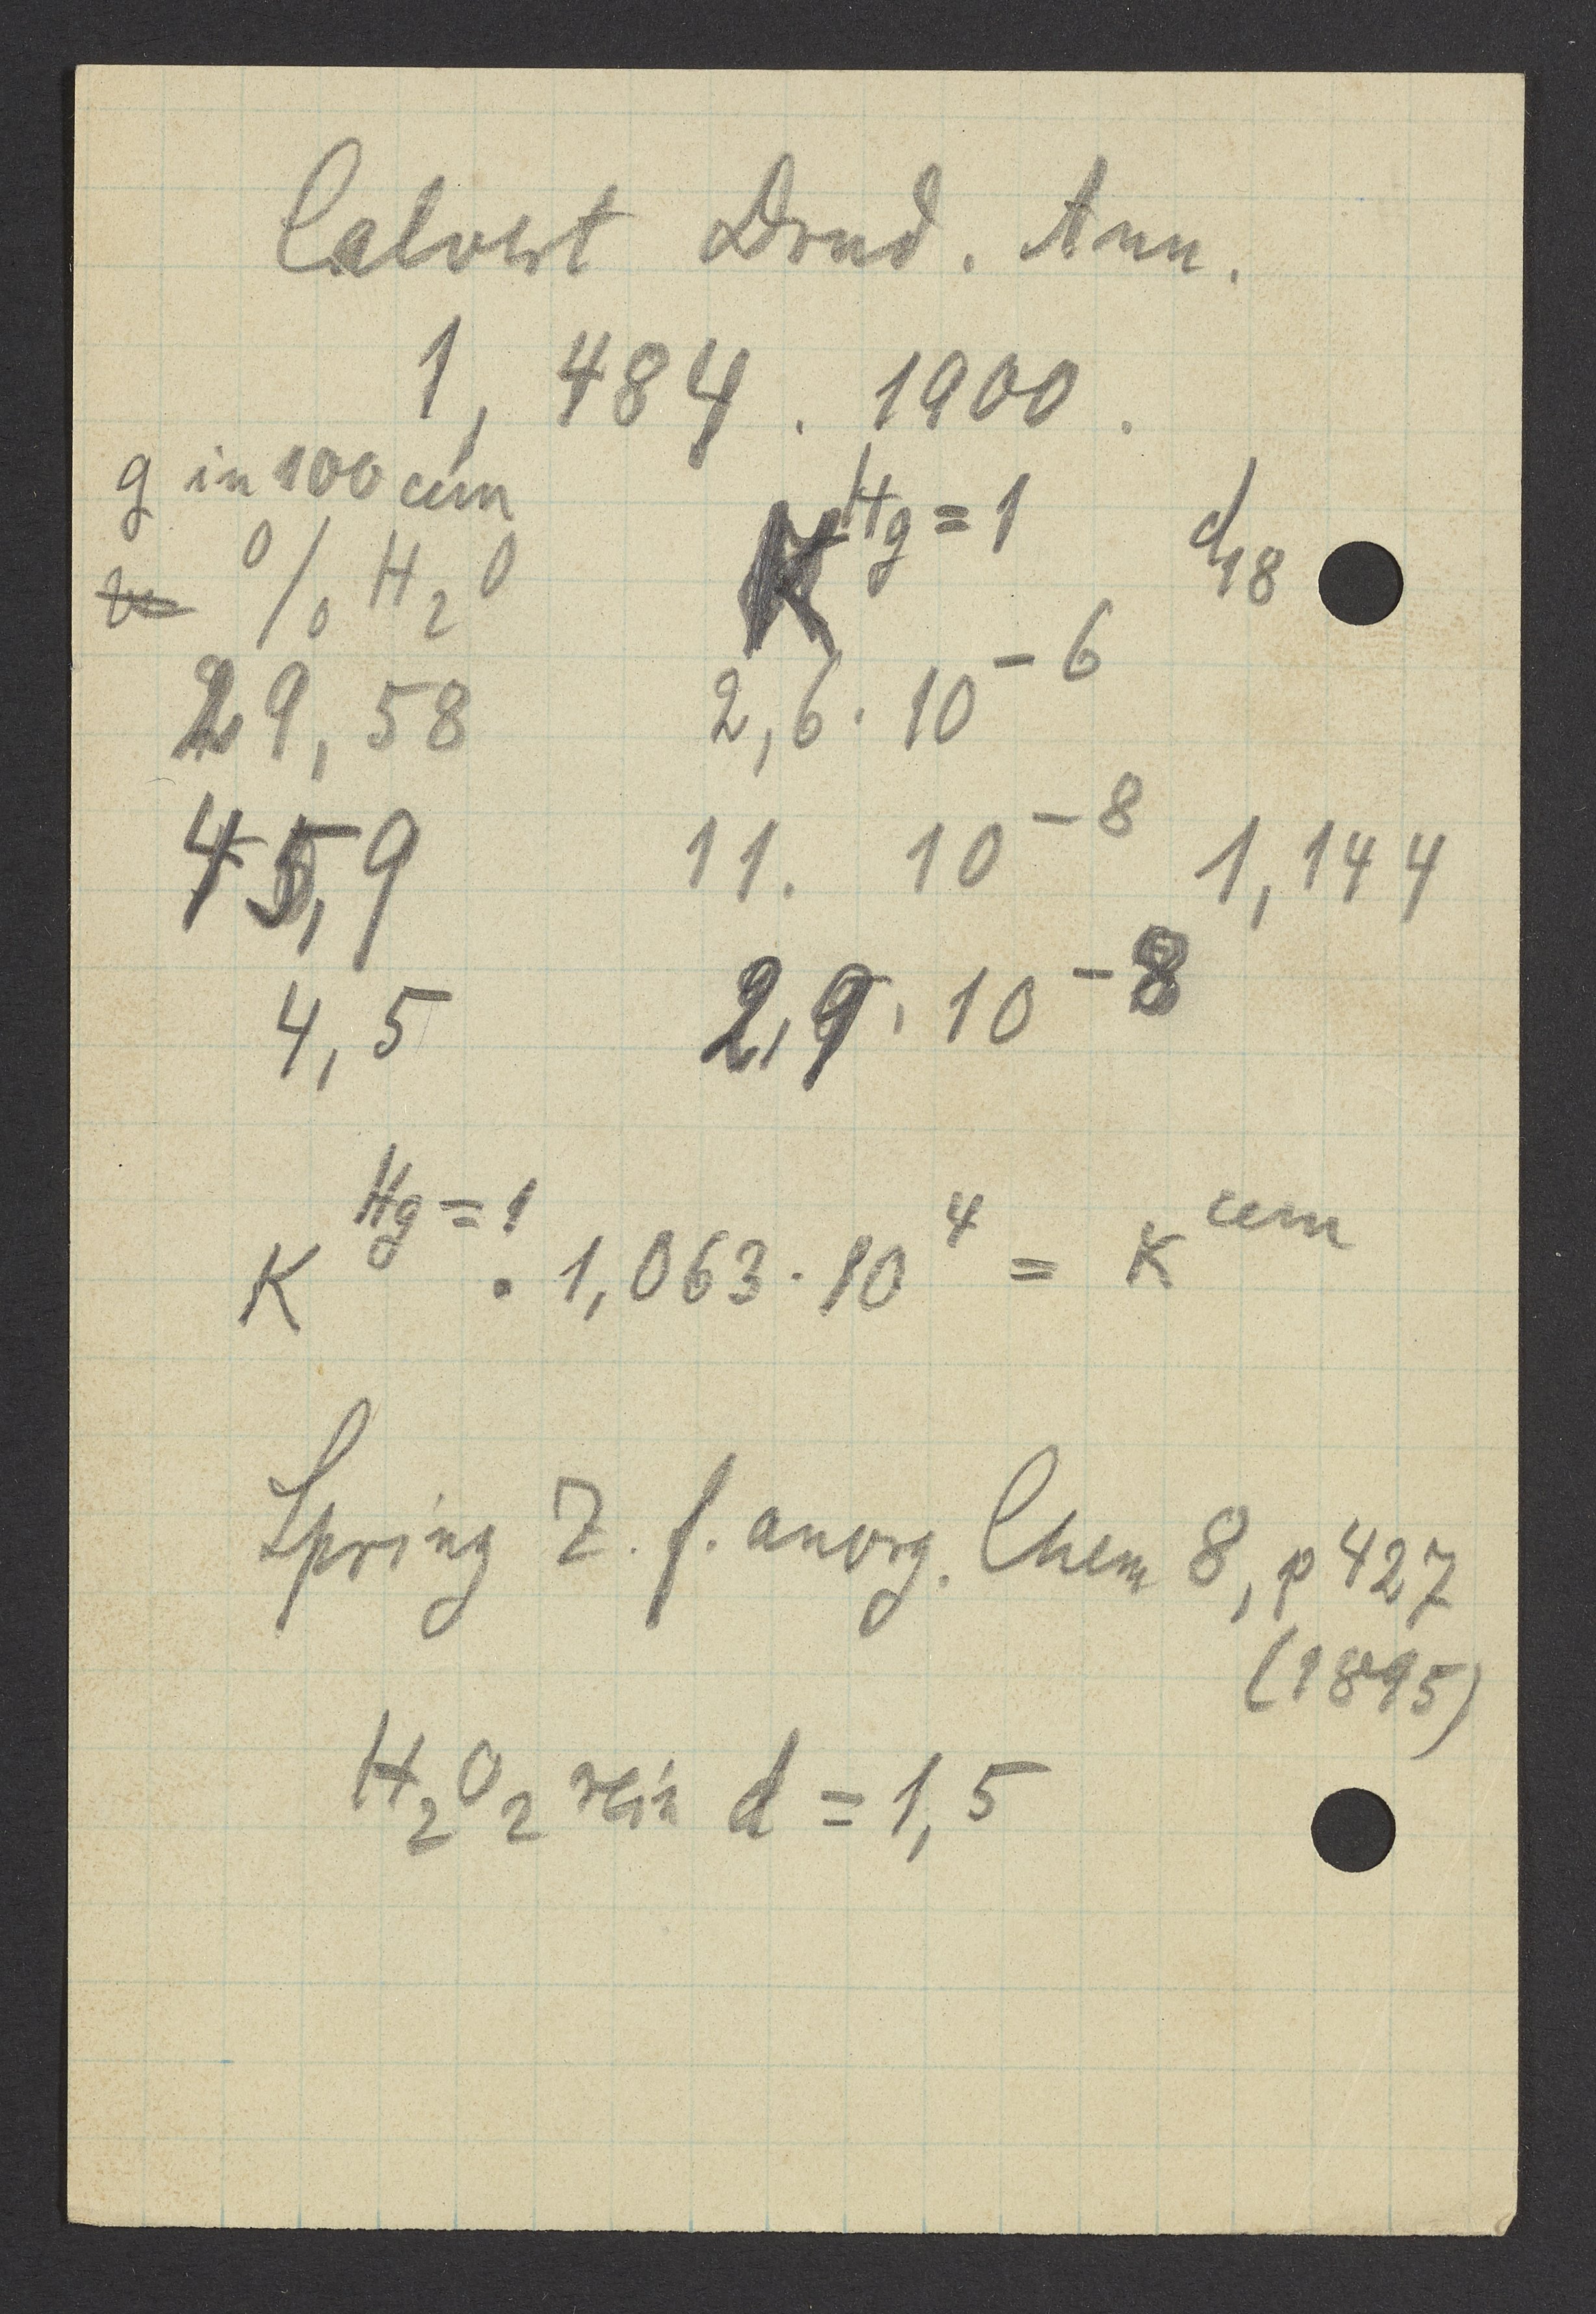 Calvert Drud. Ann.
1, 484. 1900.
g in 100 ccm
% H2O K^Hg=1 d18
29,58 2,6 · 10^-6
45,9 11. 10^-8 1,144
4,5 2,9 · 10^-8
K^Hg=1 · 1,063 · 10^4 = K^ccm
Spring Z. f. anorg. Chem 8, p 427
(1895)
H2O2 rein d = 1,5